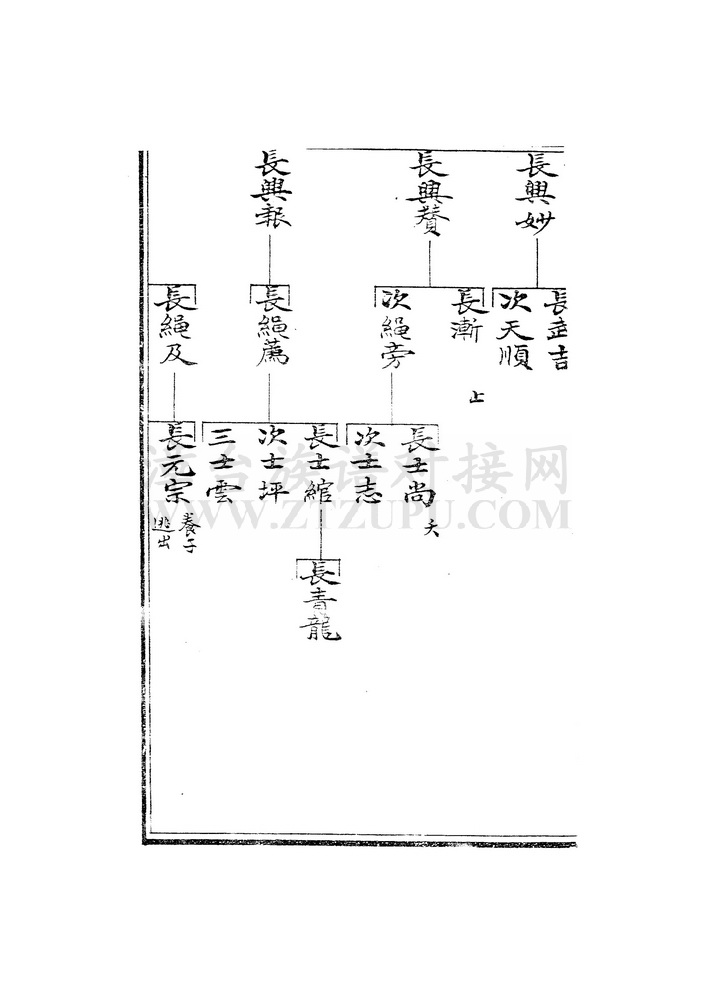 長興妙
長興賛
長興報
長武吉
次天順
長漸
止
次繩旁
長繩薦
長繩及
長士尚
夭
次士志
長士綰
次士坪
三士雲
長元宗
養子
逃出
長青龍
WWW.ZTZUPU.COM